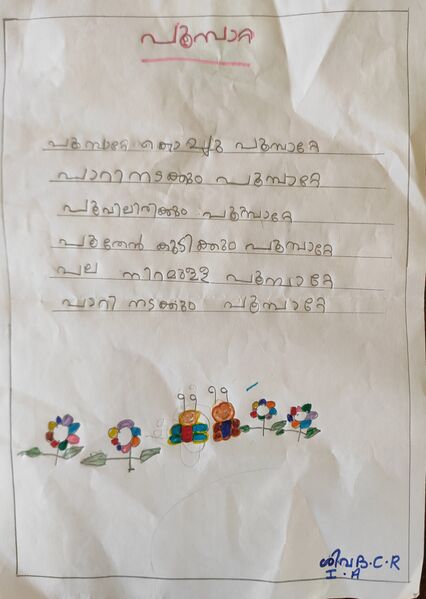 പൂമ്പാറ്റ
പൂമ്പാറ്റേ കൊച്ചു പൂമ്പാറ്റേ
പാറിനടക്കും പൂമ്പാറ്റേ
പൂവിലിരിക്കും പൂമ്പാറ്റേ
പൂന്തേൻ കുടിക്കും പൂമ്പാറ്റേ
പല നിറമുള്ള പൂമ്പാറ്റേ
പാറി നടക്കും പൂമ്പാറ്റേ
ശിവ B.C.R
I.A